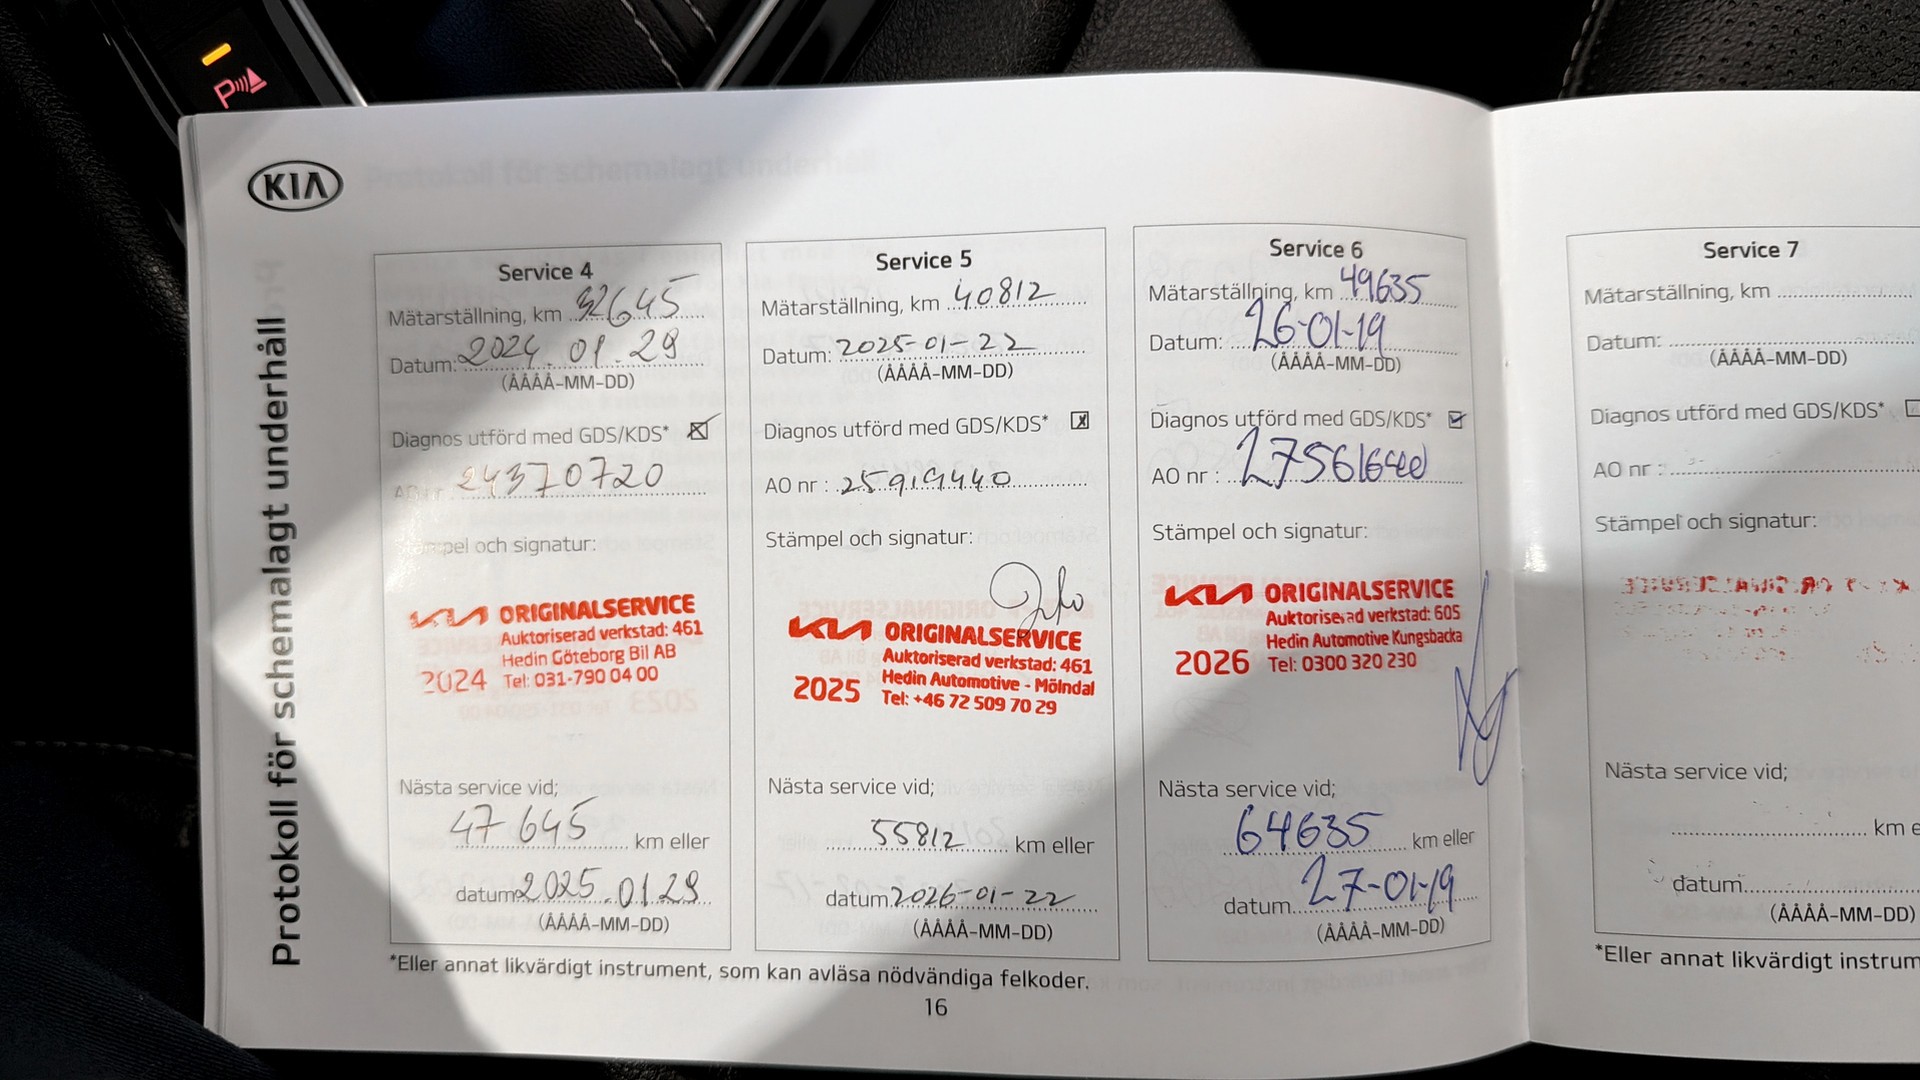 P
KIA
Protokoll för schemalagt underhåll
Service 4
Mätarställning, km 32645
Datum: 2024.01.29
(ÅÅÅÅ-MM-DD)
Diagnos utförd med GDS/KDS*
AO nr : 24370720
Stämpel och signatur:
KIA ORIGINALSERVICE
Auktoriserad verkstad: 461
Hedin Göteborg Bil AB
2024 Tel: 031-790 04 00
Nästa service vid;
47645 km eller
datum 2025.01.29
(ÅÅÅÅ-MM-DD)
Service 5
Mätarställning, km 40812
Datum: 2025-01-22
(ÅÅÅÅ-MM-DD)
Diagnos utförd med GDS/KDS*
AO nr : 25919440
Stämpel och signatur:
KIA ORIGINALSERVICE
Auktoriserad verkstad: 461
Hedin Automotive - Mölndal
2025 Tel: +46 72 509 70 29
Nästa service vid;
55812 km eller
datum 2026-01-22
(ÅÅÅÅ-MM-DD)
Service 6
Mätarställning, km 49635
Datum: 26-01-19
(ÅÅÅÅ-MM-DD)
Diagnos utförd med GDS/KDS*
AO nr :
Stämpel och signatur:
KIA ORIGINALSERVICE
Auktoriserad verkstad: 605
Hedin Automotive Kungsbacka
2026 Tel: 0300 320 230
Nästa service vid;
64635 km eller
datum 27-01-19
(ÅÅÅÅ-MM-DD)
*Eller annat likvärdigt instrument, som kan avläsa nödvändiga felkoder.
16
Service 7
Mätarställning, km
Datum:
(ÅÅÅÅ-MM-DD)
Diagnos utförd med GDS/KDS*
AO nr :
Stämpel och signatur:
Nästa service vid;
km e
datum
(ÅÅÅÅ-MM-DD)
*Eller annat likvärdigt instrum